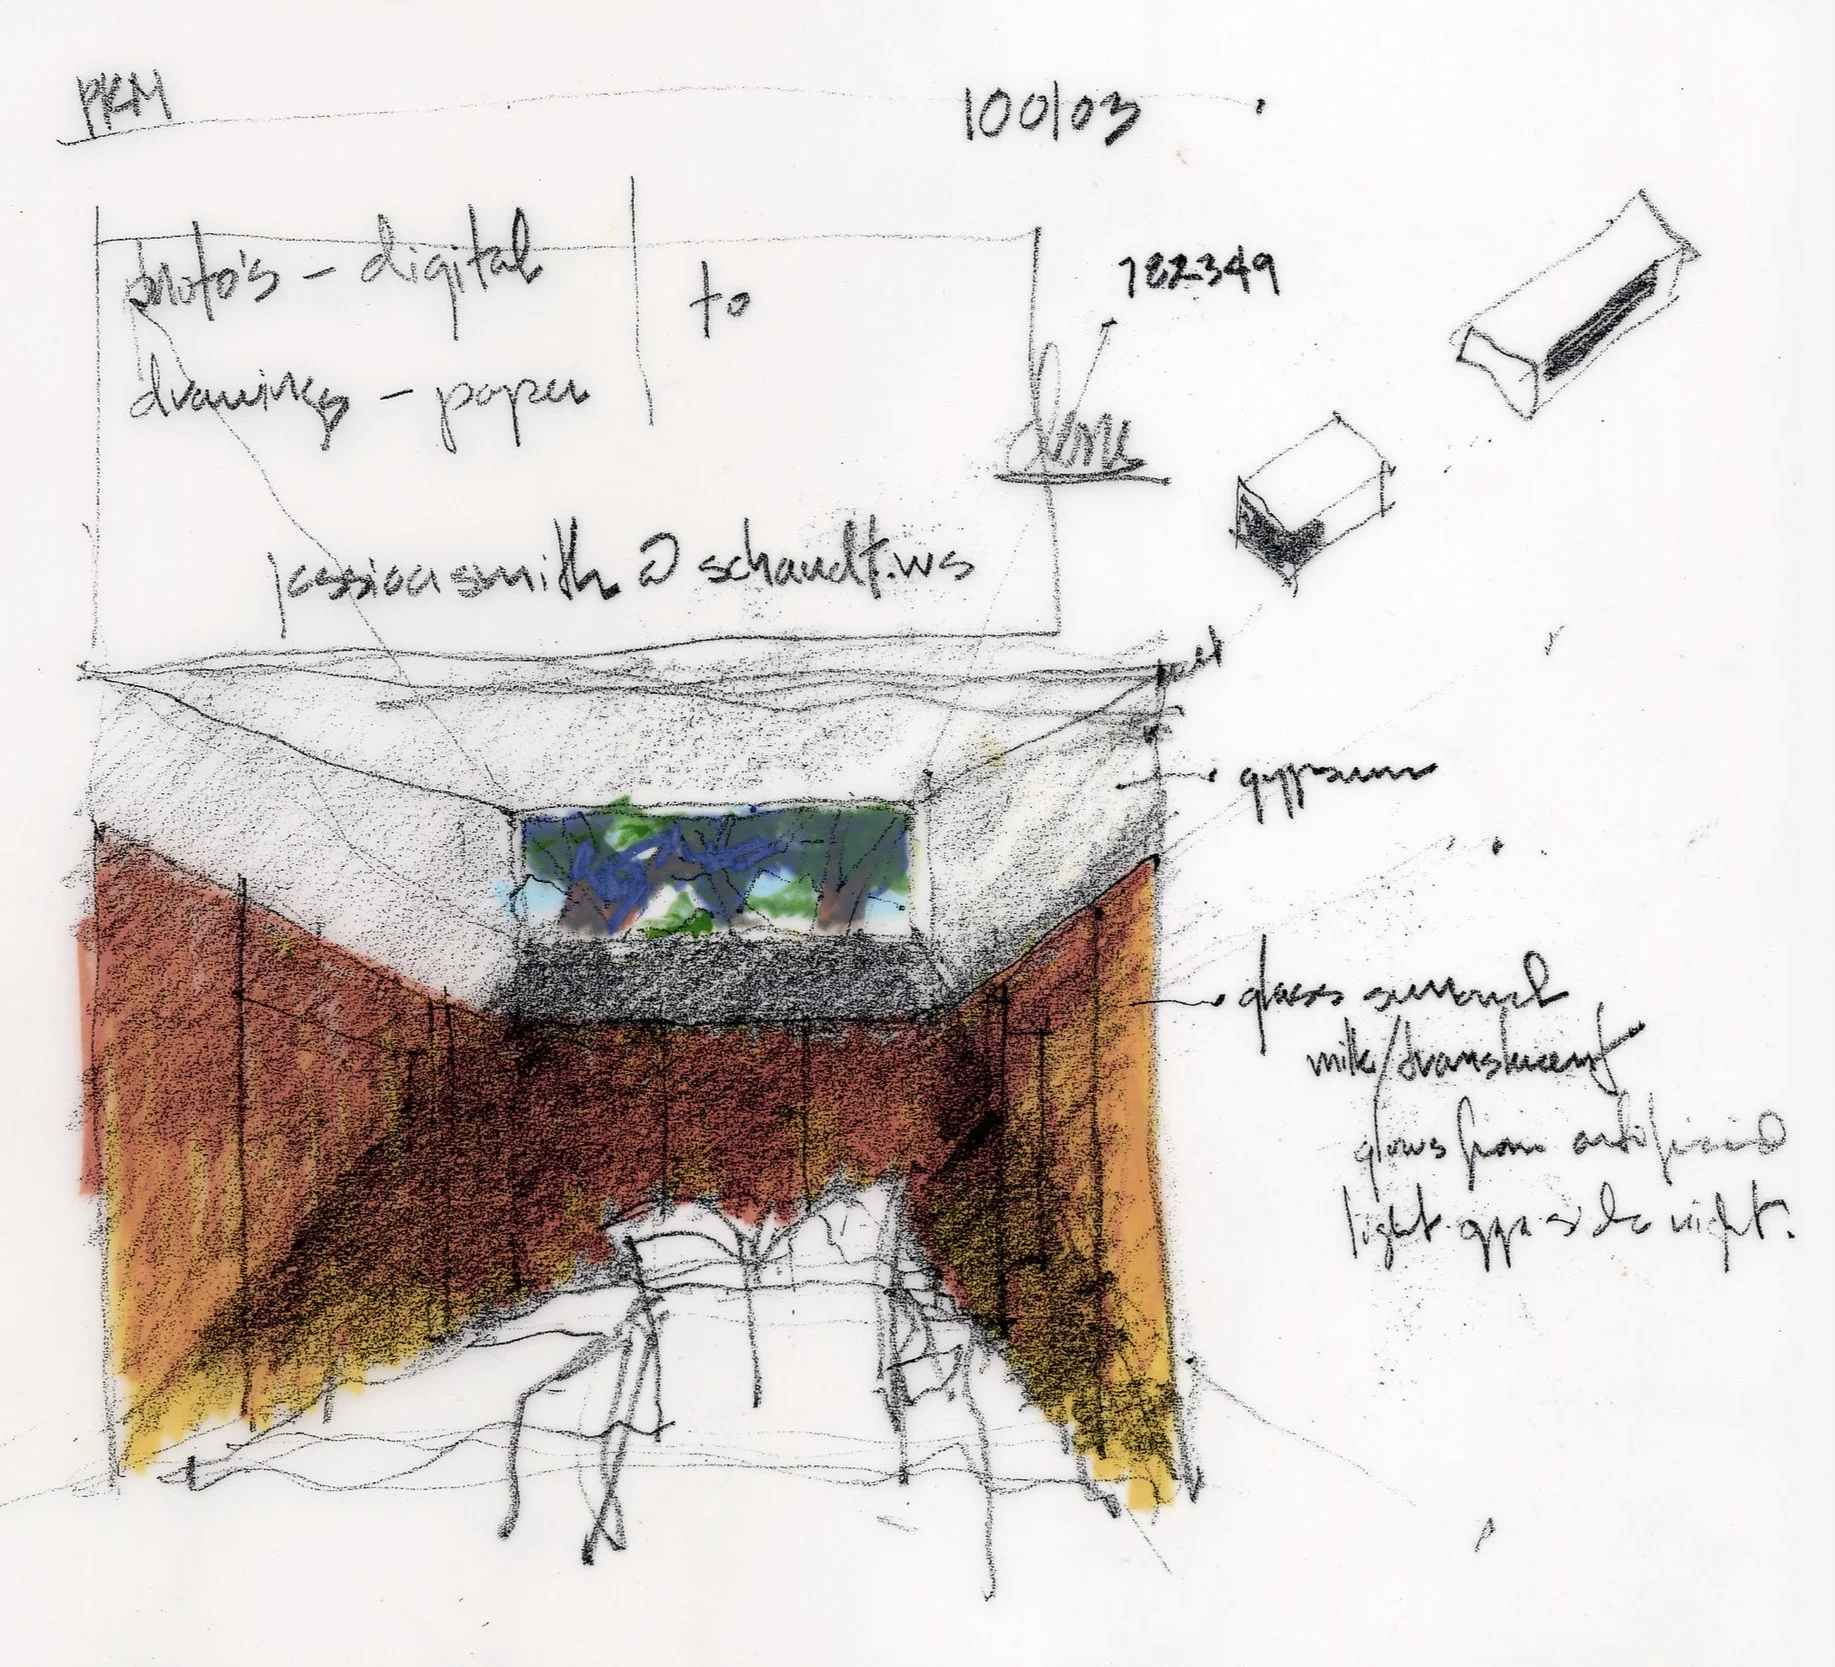 100103
photo's - digital
to
drawings - paper
782349
done
jessicasmith@schaudt.ws
gypsum
glass
milk/translucent
glows from artificial
light night.